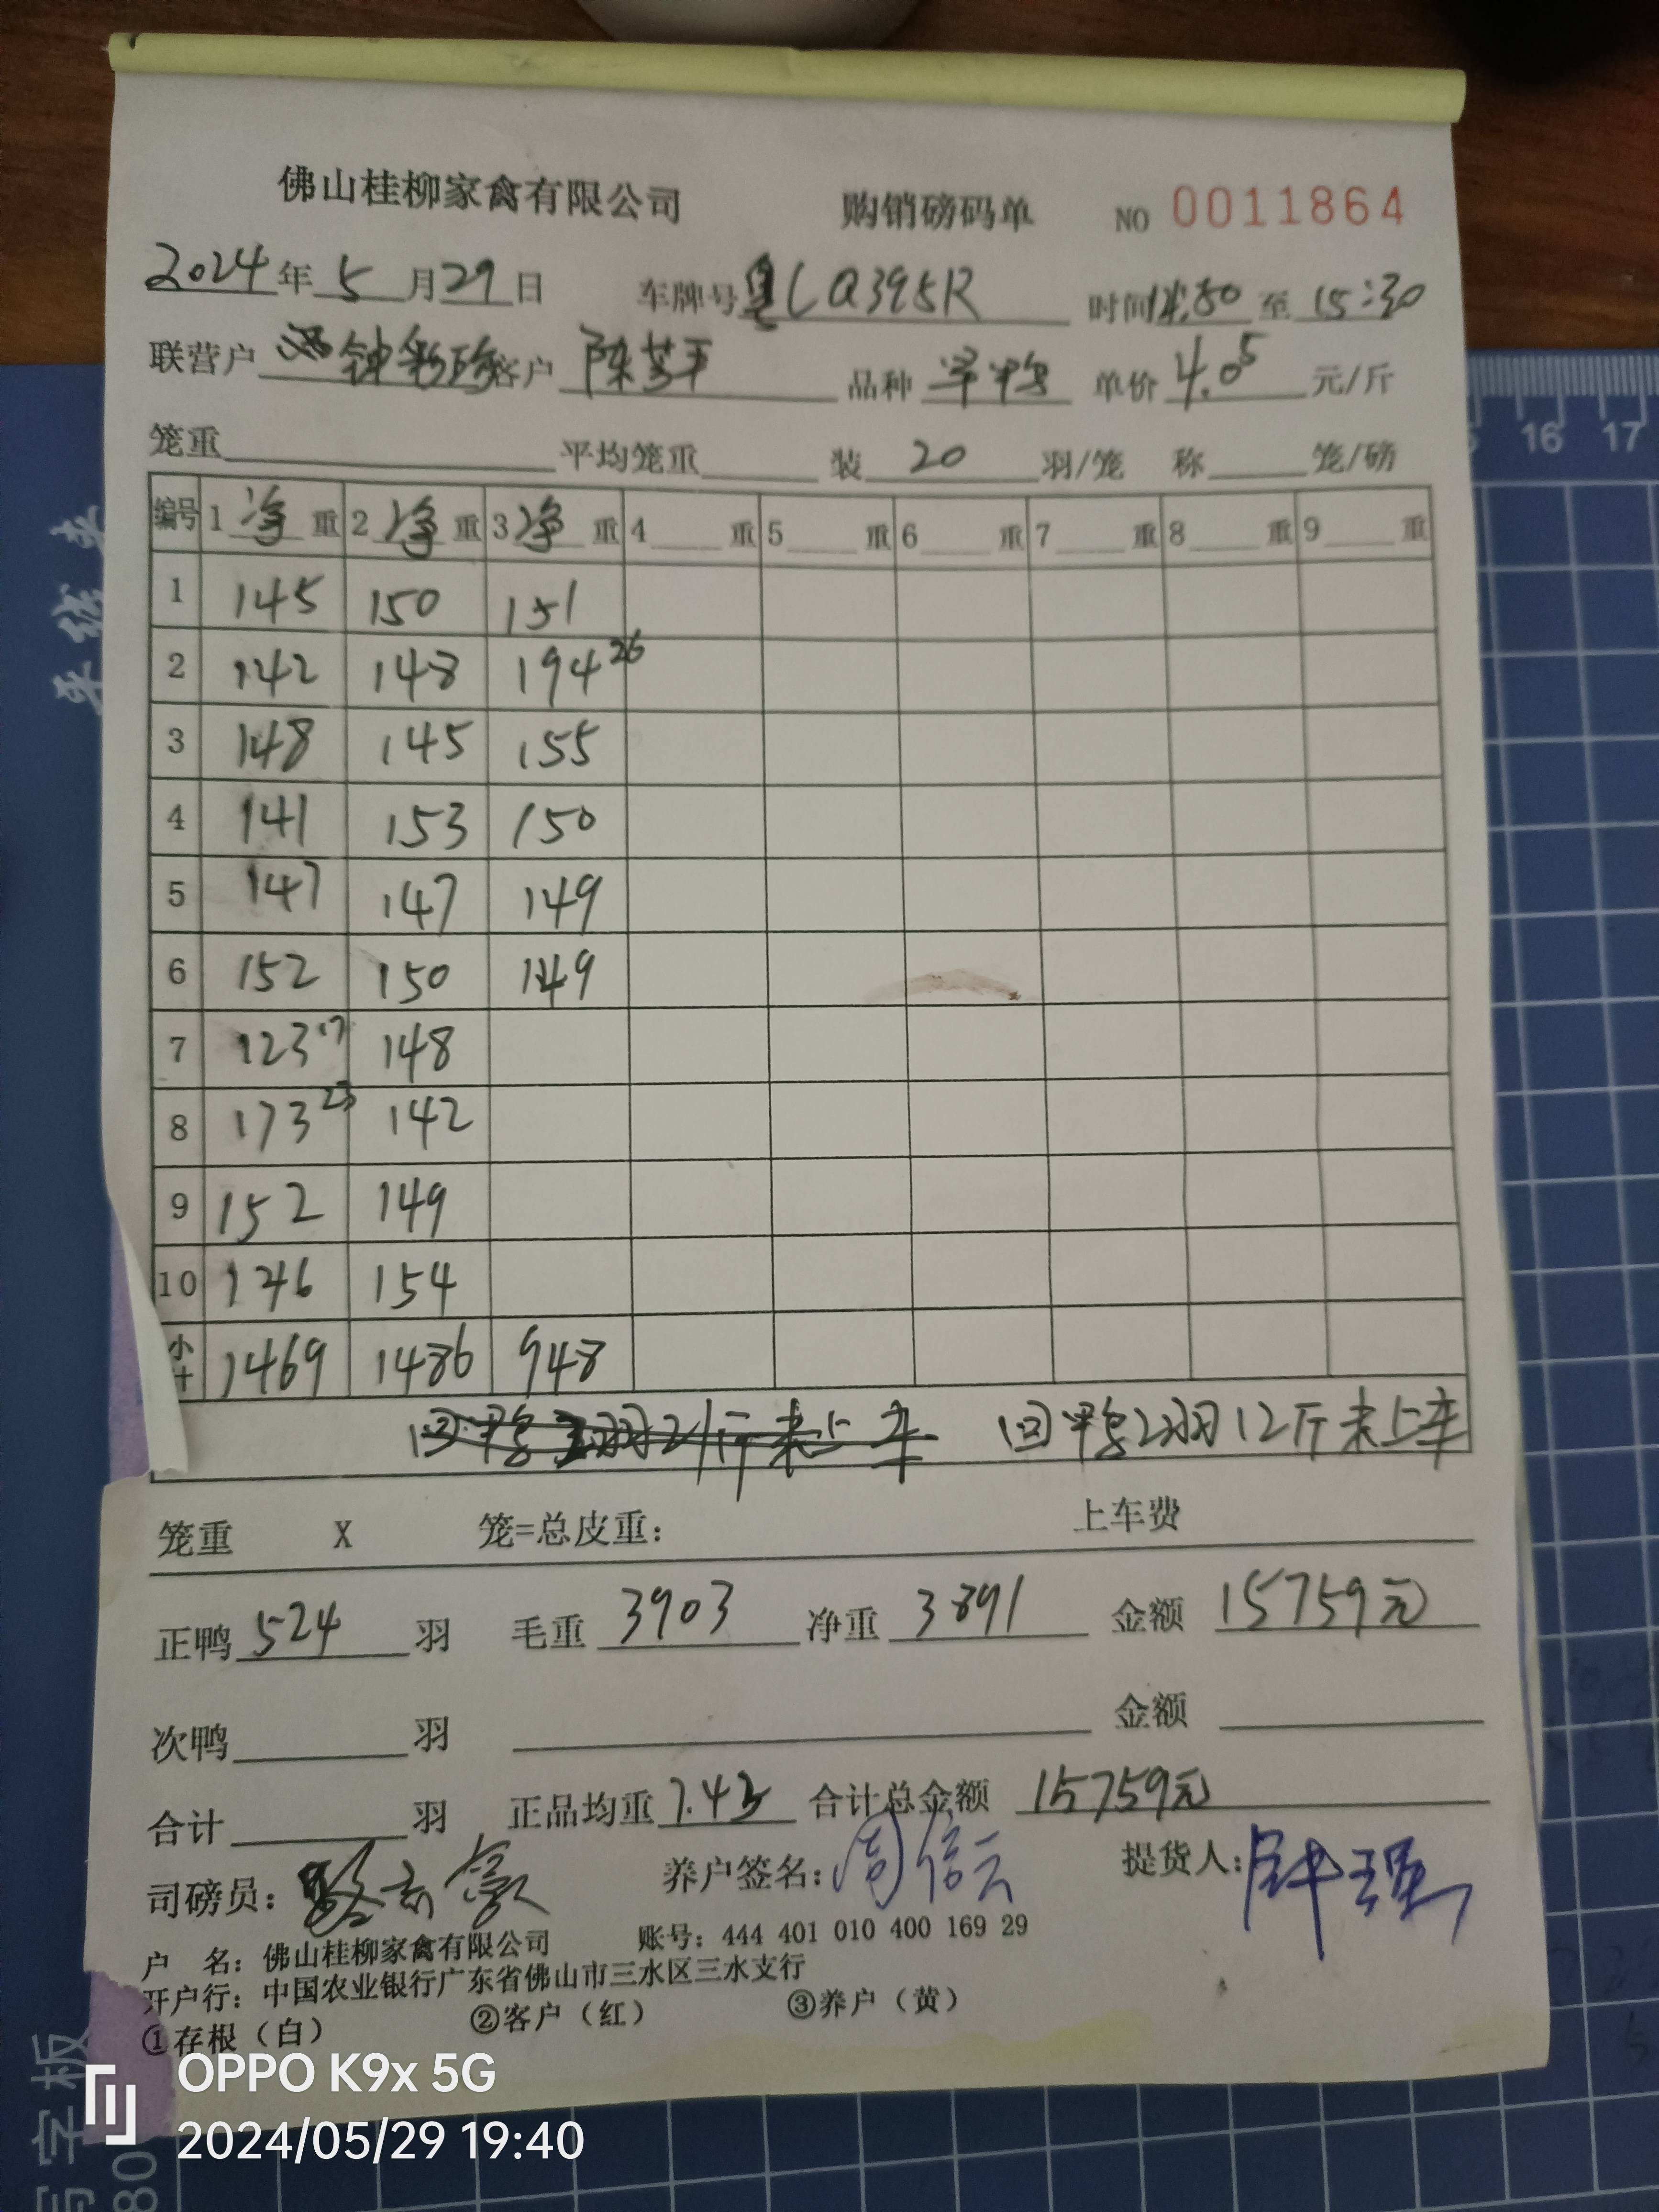 佛山桂柳家禽有限公司 购销磅码单 NO 0011864
2024年5月29日 车牌号粤LQ395R 时间14:50至15:30
联营户 客户 品种 单价4.05元/斤
笼重 平均笼重 装20羽/笼 称 笼/磅
编号 1净重 2净重 3净重 4 重 5 重 6 重 7 重 8 重 9 重
1 145 150 151
2 142 148 194 26
3 148 145 155
4 141 153 150
5 147 147 149
6 152 150 149
7 123 17 148
8 173 23 142
9 152 149
10 146 154
小计 1469 1486 948
回鸭2羽12斤未上车
笼重 X 笼=总皮重: 上车费
正鸭524羽 毛重3903 净重3891 金额15759元
次鸭 羽 金额
合计 羽 正品均重7.43 合计总金额 15759元
司磅员: 养户签名:周信云 提货人:
户 名:佛山桂柳家禽有限公司 账号:444 401 010 400 169 29
开户行:中国农业银行广东省佛山市三水区三水支行
①存根(白) ②客户(红) ③养户(黄)
16 17
字板
80
OPPO K9x 5G
2024/05/29 19:40